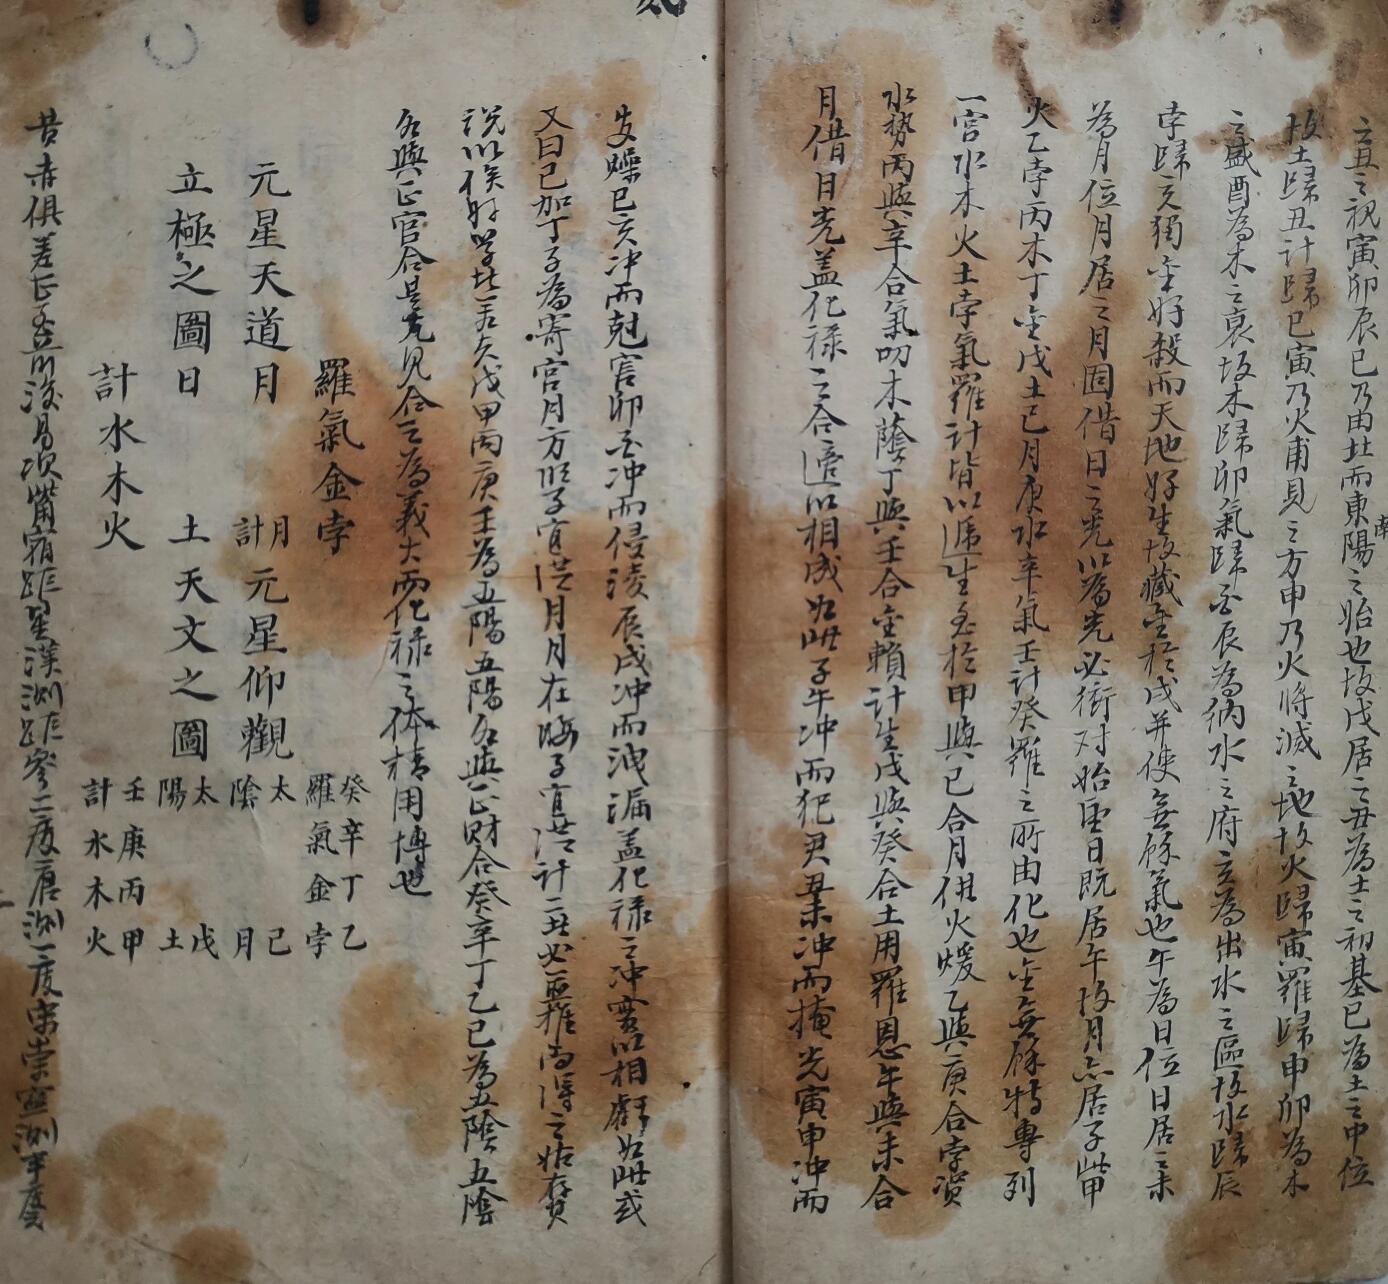 之丑之視寅卯辰巳乃由北而東陽之始也故戊居之丑為土之初基巳為土之中位
南
故土歸丑計歸巳寅乃火甫見之方申乃火將滅之地故火歸寅羅歸申卯為木
之盛酉為木之衰故木歸卯氣歸酉辰為納水之府亥為出水之區故水歸辰
孛歸亥獨金好殺而天地好生故藏金於戌并使無餘氣也午為日位日居之未
為月位月居之月固借日之光以為光必衝对始日既居午故月亦居子
火乙孛丙木丁金戊土己月庚水辛氣壬計癸羅之所由化也金無餘特專列
一宮水木火土孛氣羅計皆以遞生至於甲與己合月火煖乙與庚合孛
水勢丙與辛合氣叨木蔭丁與壬合金賴計生戊與癸合土用羅恩午與未合
月借日光盖化禄之合以相成如此子午冲而犯君丑未冲而掩光寅申冲而
燥巳亥冲而尅害卯酉冲而侵淩辰戌冲而洩漏盖化禄之冲以相虧如此或
又曰己加丁子為寄宮月方子宜月月在子宜計二丑必羅之姑存
説以俟好學者矣戊甲丙庚壬為五陽五陽各與正財合癸辛丁乙己為五陰五陰
各與正官合是先見合之為義大而化禄之体精用博也
羅氣金孛
元星天道月
計月元星仰觀
立極之圖日
土天文之圖
計水木火
癸辛丁乙
羅氣金孛
太己
陰月
太戊
陽土
壬庚丙甲
計水木火
昔赤俱差後易次觜宿距星漢測距參二度唐測一度宋崇測半度